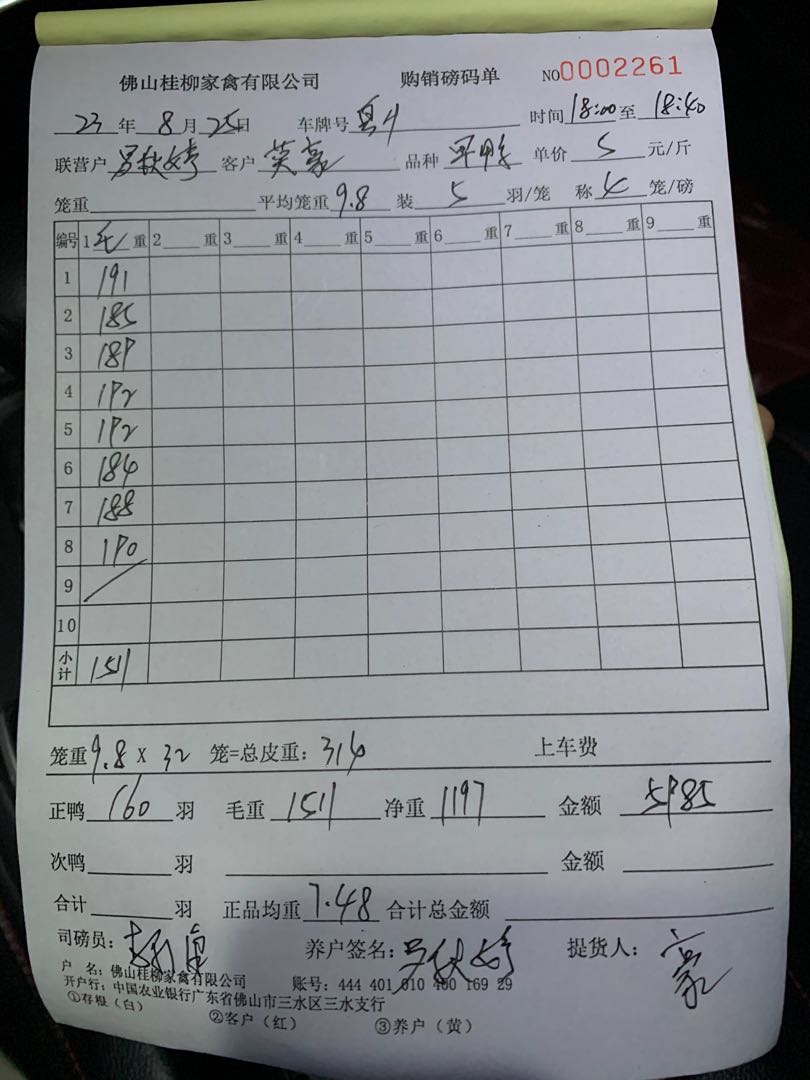 佛山桂柳家禽有限公司 购销磅码单 NO0002261
23年8月25日 车牌号 时间18:00至18:40
联营户 客户 品种 单价5元/斤
笼重 平均笼重9.8 装5羽/笼 称4笼/磅
编号 1毛重 2重 3重 4重 5重 6重 7重 8重 9重
1 191
2 185
3 189
4 192
5 192
6 184
7 188
8 190
9
10
小计 1511
笼重9.8X32笼=总皮重:314 上车费
正鸭160羽 毛重1511 净重1197 金额5985
次鸭 羽 金额
合计 羽 正品均重7.48 合计总金额
司磅员: 养户签名: 提货人:豪
户 名:佛山桂柳家禽有限公司 账号:444 401 010 400 169 29
开户行:中国农业银行广东省佛山市三水区三水支行
①存根(白) ②客户(红) ③养户(黄)